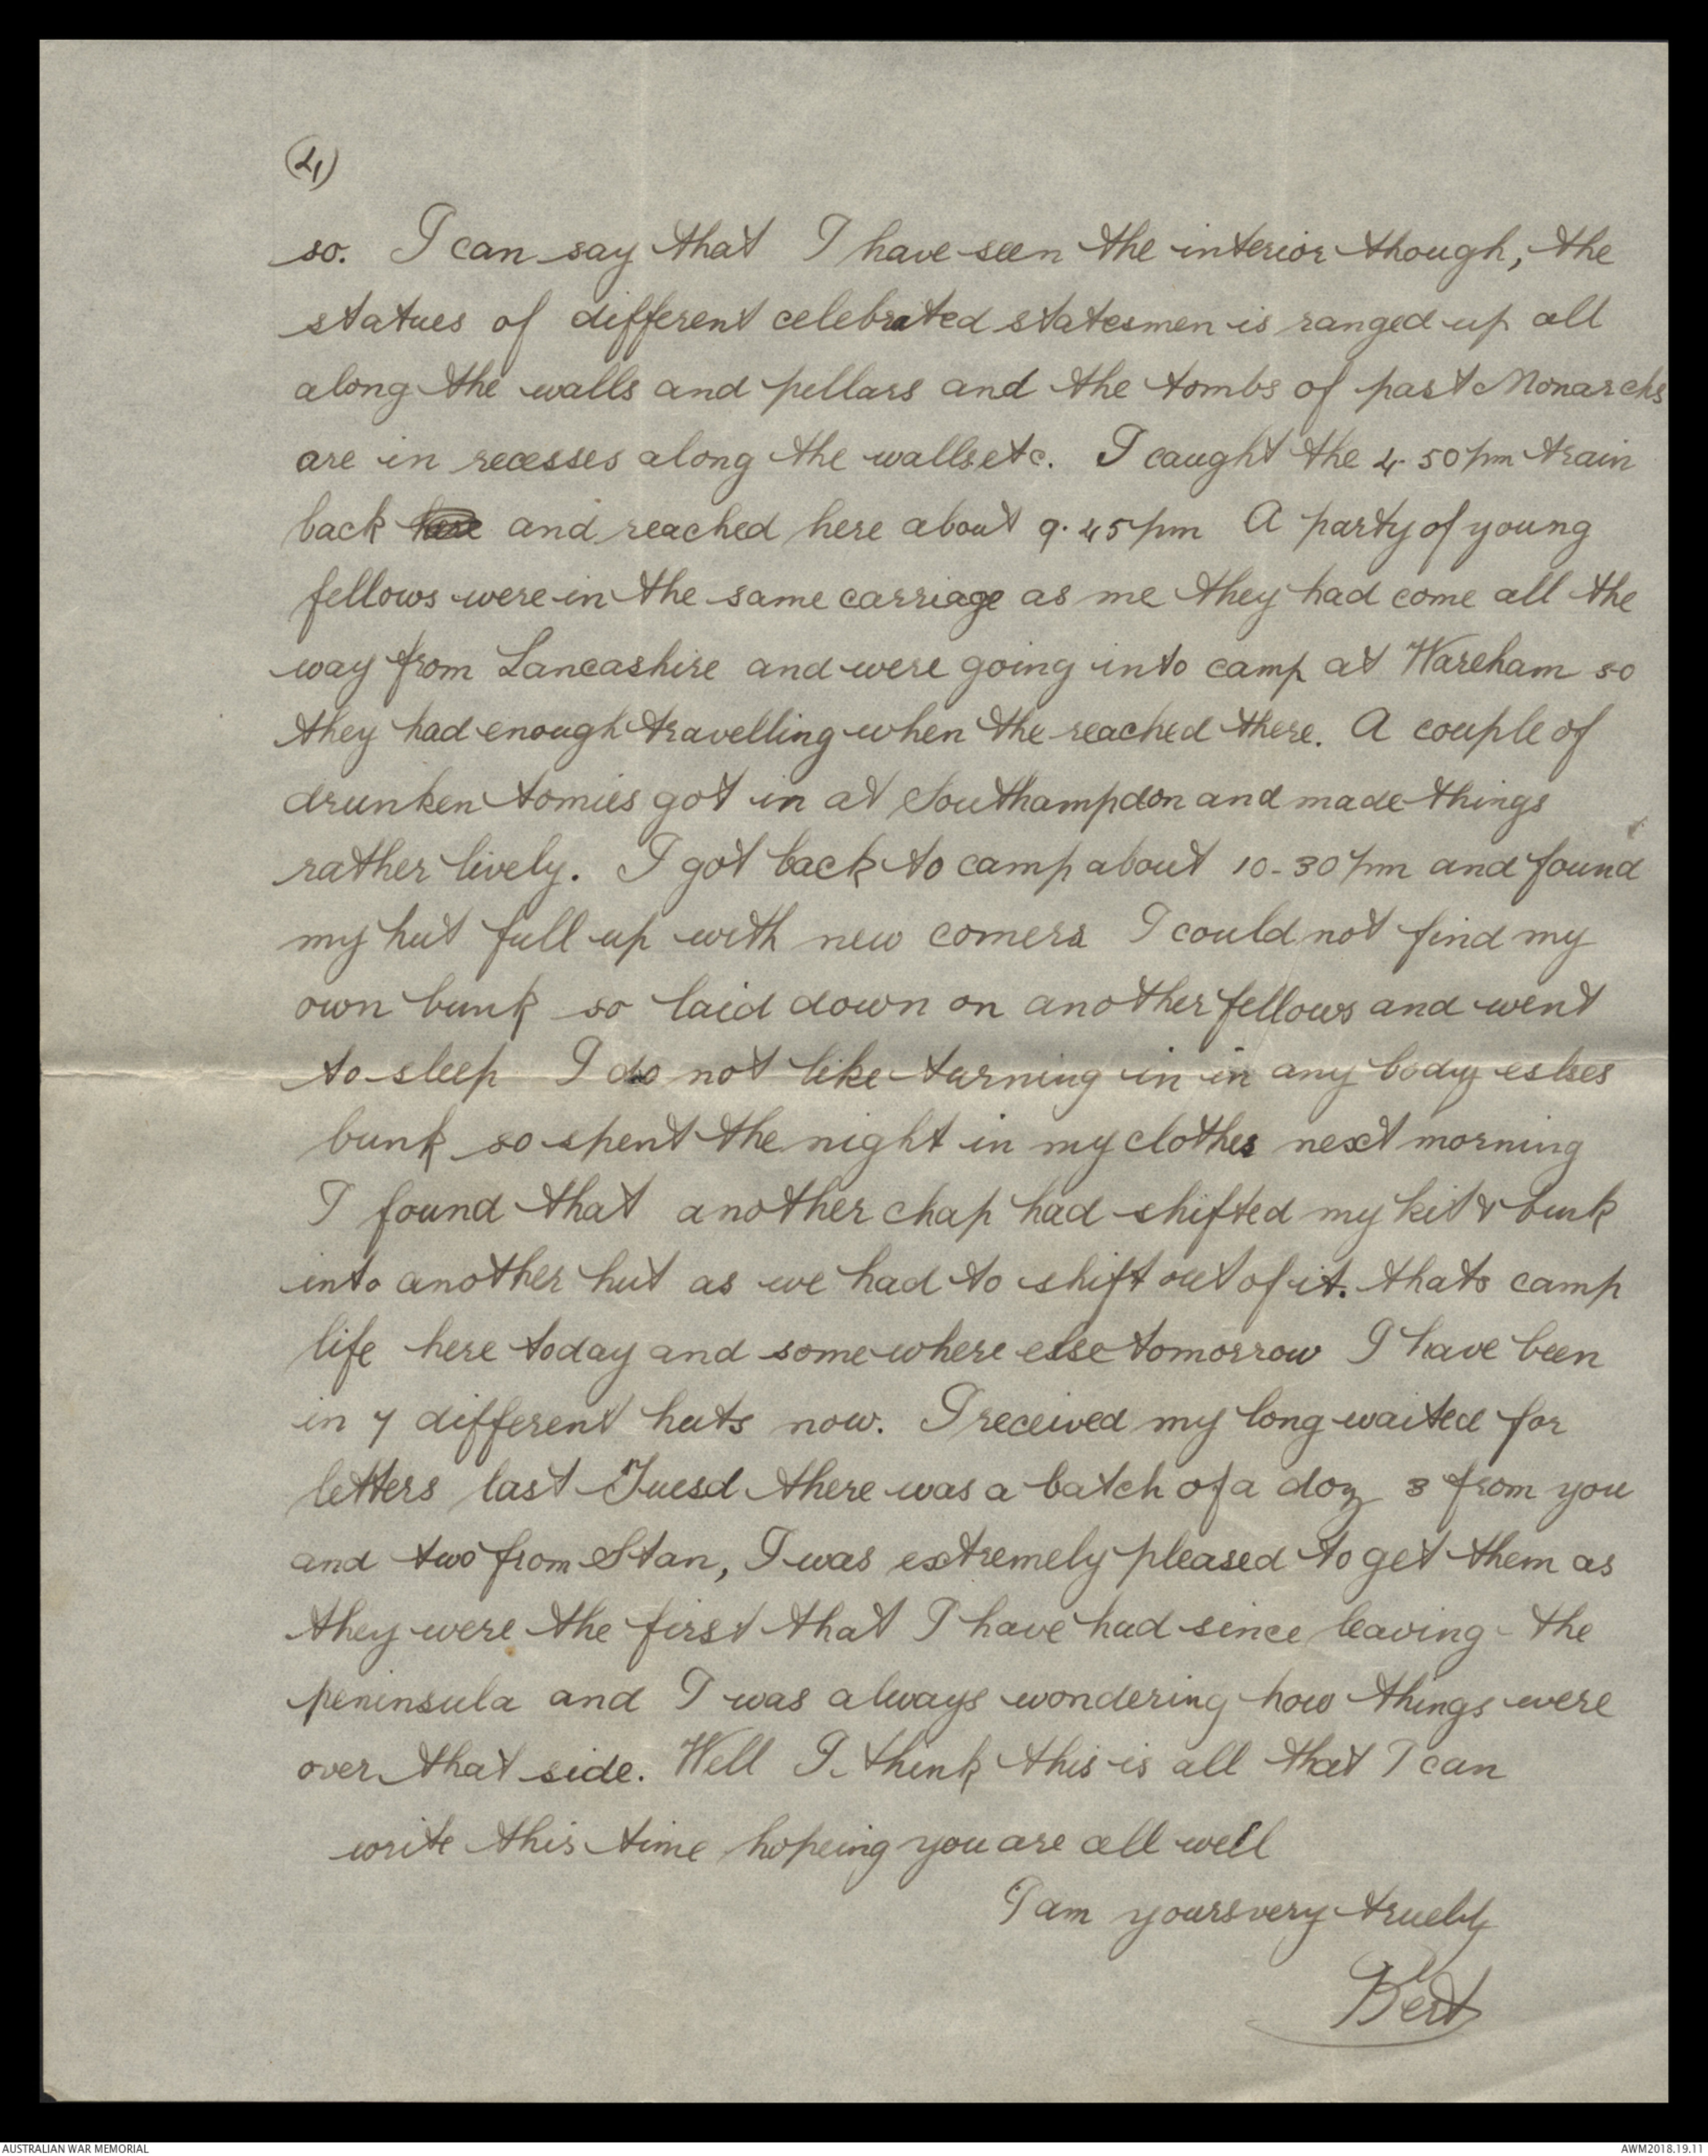 (4)
so. I can say that I have seen the interior though, the
statues of different celebrated statesmen is ranged up all
along the walls and pillars and the tombs of past Monarchs
are in recesses along the walls etc. I caught the 4.50 pm train
back and reached here about 9.45 pm A party of young
fellows were in the same carriage as me they had come all the
way from Lancashire and were going into camp at Wareham so
they had enough travelling when the reached there. A couple of
drunken tomies got in at Southampdon and made things
rather lively. I got back to camp about 10-30 pm and found
my hut full up with new comers I could not find my
own bunk so laid down on another fellows and went
to sleep I do not like turning in in any body eslses
bunk so spent the night in my clothes next morning
I found that another chap had shifted my kit & bunk
into another hut as we had to shift out of it. thats camp
life here today and somewhere else tomorrow I have been
in 7 different huts now. I received my long waited for
letters last Tuesd there was a batch of a doz 3 from you
and two from Stan, I was extremely pleased to get them as
they were the first that I have had since leaving the
peninsula and I was always wondering how things were
over that side. Well I think this is all that I can
write this time hopeing you are all well
I am yours very truely
Bert
AUSTRALIAN WAR MEMORIAL
AWM2018.19.11